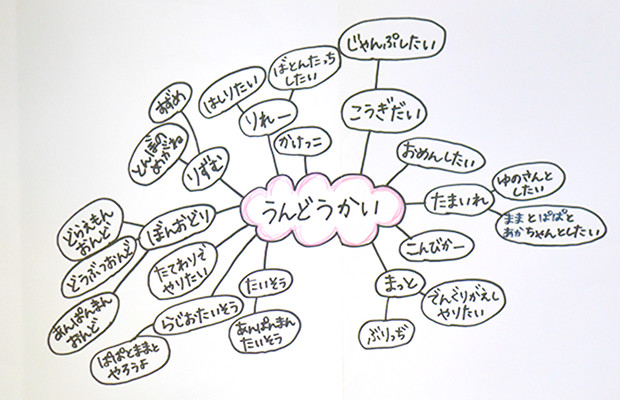 うんどうかい
こうぎだい
じゃんぷしたい
りれー
ばとんたっち
したい
はしりたい
かけっこ
りずむ
すずめ
とんぼの
めがね
ぼんおどり
どらえもん
おんど
どうぶつおんど
あんぱんまん
おんど
たてわりで
やりたい
らじおたいそう
ぱぱとままと
やろうよ
たいそう
あんぱんまん
たいそう
まっと
ぶりっぢ
でんぐりがえし
やりたい
こんびかー
たまいれ
ゆのさんと
したい
ままとぱぱと
あかちゃんとしたい
おめんしたい